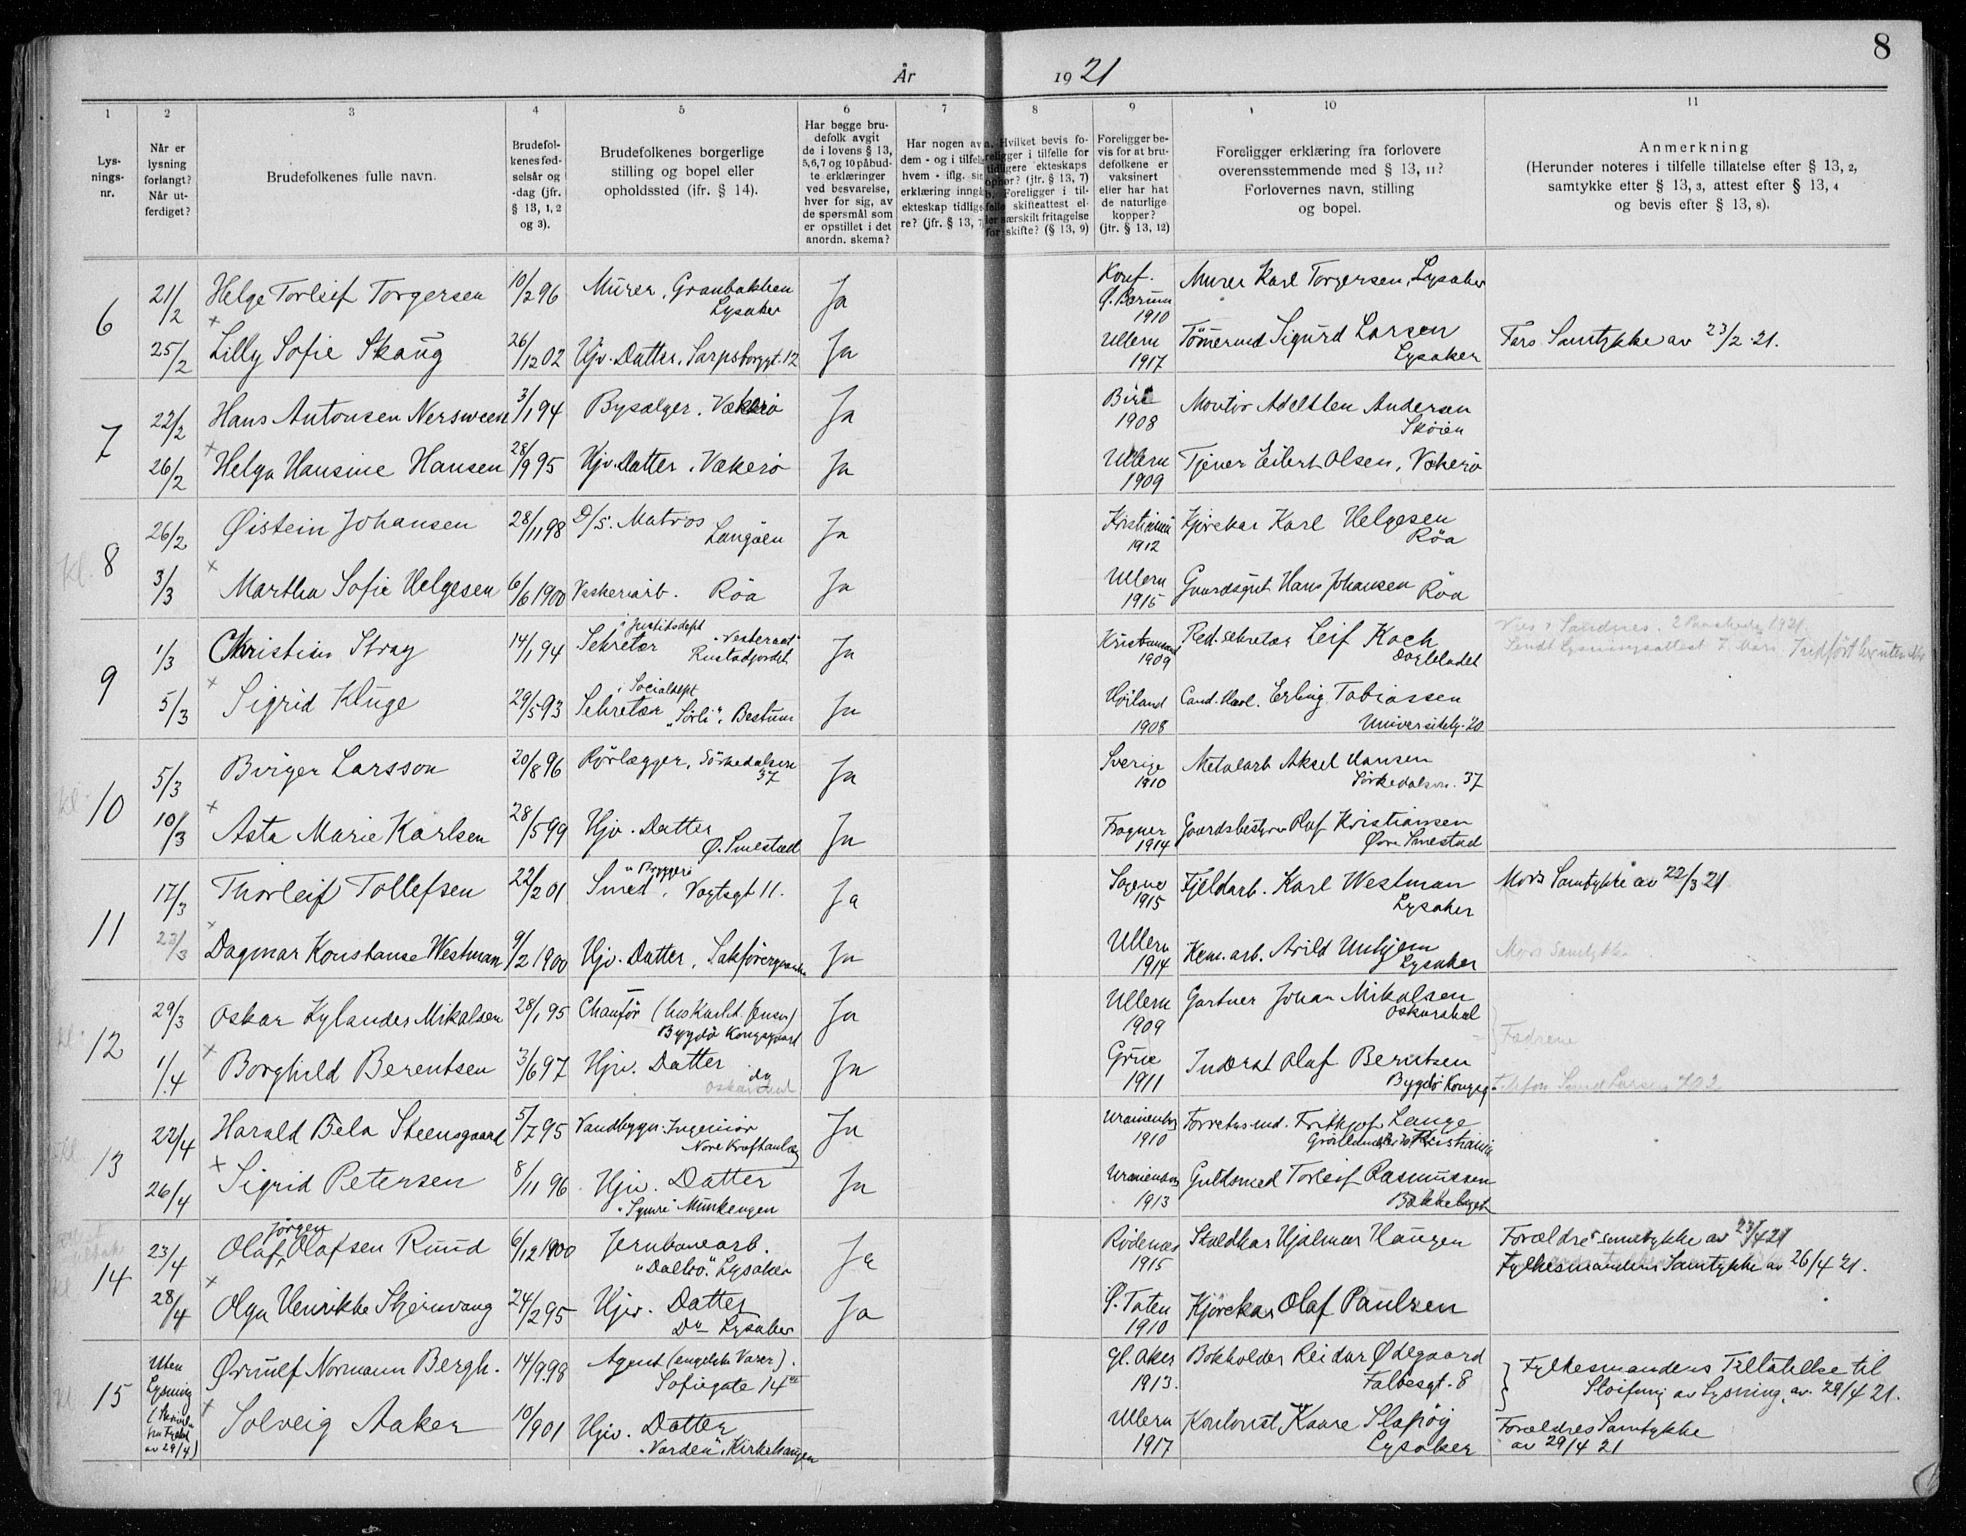 8
År 1921
1 2 3 4 5 6 7 8 9 10 11
Lys-
nings-
nr.
Når er
lysning
forlangt?
Når ut-
ferdiget?
Brudefolkenes fulle navn.
Brudefol-
kenes fød-
selsår og
-dag (jfr.
§ 13, 1, 2
og 3).
Brudefolkenes borgerlige
stilling og bopel eller
opholdssted (ifr. § 14).
Har begge bru-
defolk avgit
de i lovens § 13,
5,6,7 og 10 påbud-
te erklæringer
ved besvarelse,
hver for sig, av
de spørsmål som
er opstillet i det
anordn. skema?
Har nogen av
dem - og i tilfelle
hvem - iflg. sin
erklæring inngå
ekteskap tidlige
re? (jfr. § 13, 7
a. Hvilket bevis fo-
religger i tilfelle for
tidligere ekteskaps
ophør? (jfr. § 13, 7)
b. Foreligger i til-
felle skifteattest el-
ler særskilt fritagelse
for skifte? (§ 13, 9)
Foreligger be-
vis for at bru-
defolkene er
vaksinert
eller har hat
de naturlige
kopper?
(jfr. § 13, 12)
Foreligger erklæring fra forlovere
overensstemmende med § 13, 11?
Forlovernes navn, stilling
og bopel.
Anmerkning
(Herunder noteres i tilfelle tillatelse efter § 13, 2,
samtykke efter § 13, 3, attest efter § 13, 4
og bevis efter § 13, 8).
6
21/2 Helge Torleif Torgersen 10/2 96 Murer, Granbakken Lysaker Ja Ø. Bærum 1910 Murer Karl Torgersen, Lysaker
25/2 Lilly Sofie Skaug 26/12 02 Hjv. Datter, Sarpsborggt. 12 Ja Ullern 1917 Tømermd Sigurd Larsen Lysaker Fars Samtykke av 23/2 21.
7
22/2 Hans Antonsen Nersween 3/1 94 Bysælger, Vækerø Ja Biri 1908 Montör Andersen Skøien
26/2 Helga Hansine Hansen 28/9 95 Hjv. Datter, Vækerø Ja Ullern 1909 Tjener Eilert Olsen, Vækerø
8
26/2 Øistein Johansen 28/11 98 D/S. Matros Langåen Ja Kristiania 1912 Kjørekar Karl Helgesen Röa
3/3 Martha Sofie Helgesen 6/6 1900 Vaskeriarb. Röa Ja Ullern 1915 Gaardsgut Hans Johansen Röa
9
1/3 Christian Stray 14/1 94 Sekretær i Justitsdept "Vesteraat" Rustadjordet Ja Kristiansand 1909 Red. sekretær Leif Koch Dagbladet Sendt Lysningsattest 7. Mars
5/3 Sigrid Kluge 29/5 93 Sekretær i Socialdept "Sörli", Bestum Ja Høiland 1908 Cand. Erling Tobiassen Universitetsg. 20
10
5/3 Birger Larsson 20/8 96 Rörlægger, Sörkedalsvn 37 Ja Sverige 1910 Metalarb Aksel Hansen Sörkedalsvn. 37
10/3 Asta Marie Karlsen 28/5 99 Hjv. Datter Ø. Smestad Ja Fagner 1914 Gaardsbestyrer Olaf Kristiansen Övre Smestad
11
17/3 Thorleif Tollefsen 22/2 01 Smed v Bryggeri, Vogtsgt 11. Ja Sagene 1915 Fjeldarb. Karl Westman Lysaker Mors Samtykke av 22/3 21
22/3 Dagmar Konstanse Westman 9/2 1900 Hjv. Datter, Ja Ullern 1914 Kem. arb. Arild Lysaker Mors Samtykke
12
29/3 Oskar Kylander Mikalsen 28/1 95 Chauför Bygdö Kongsgaard Ja Ullern 1909 Gartner Johan Mikalsen Oskarshal
1/4 Borghild Berentsen 3/6 97 Hjv. Datter do Ja Grue 1911 Inderst Olaf Berntsen Bygdö Kongsg. Fædrene
13
22/4 Harald Bela Steensgaard 5/7 95 Vandbygn. Ingeniör Nore Kraftanlæg Ja Uranienborg 1910 Forretn.md. Fritkjof Lange Kristiania
26/4 Sigrid Petersen 8/11 96 Hjv. Datter Munkengen Ja Uranienborg 1913 Guldsmed Torleif Rasmussen Bakkehaget
14
23/4 Olaf Jörgen Olafsen Ruud 6/12 1900 Jernbanearb. "Dalbo". Lysaker Ja Rödenes 1915 Staldkar Hjalmar Haugen Forældres samtykke av 23/4 21
Fylkesmandens Samtykke av 26/4 21.
28/4 Olga Henrikke Skjernvang 24/2 95 Hjv. Datter Do Lysaker Ja Ø. Toten 1910 Kjörekar Olaf Paulsen
15
Uten Lysning Ørnulf Normann Bergh. 14/9 98 Agent (engelske Varer). Sofiegate 14 Gl. Aker 1913. Bokholder Reidar Ødegaard Falbesgt. 8 Fylkesmandens Tillatelse til
Sløifning av Lysning, av 29/4 21.
av 29/4) Solveig Aaker 10/9 01 Hjv. Datter "Varden", Kirkehaugen Ullern 1917 Kontorist Kaare Lysaker Forældres Samtykke
av 29/4 21